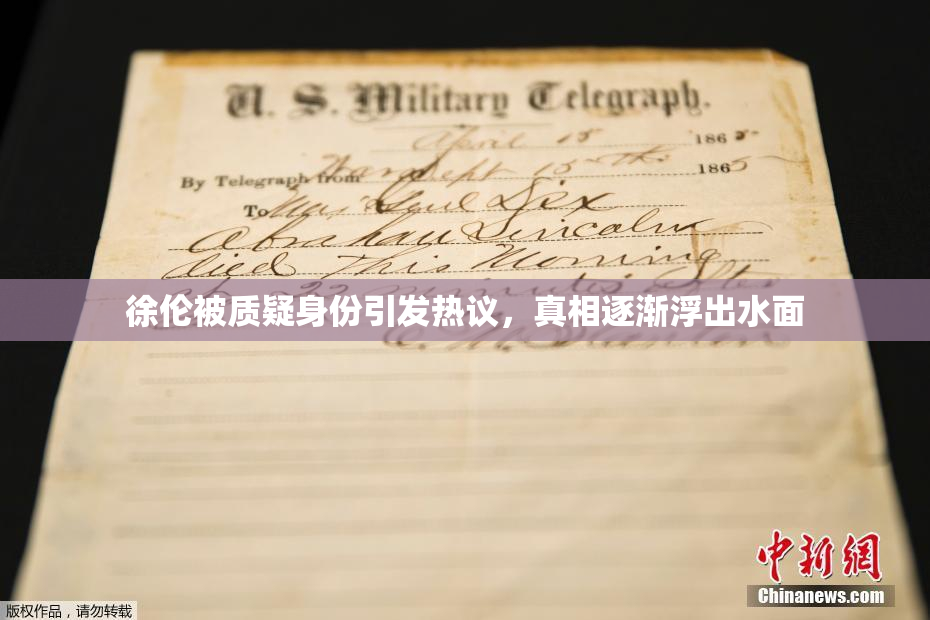 U. S. Military Telegraph.
April 15 1865
By Telegraph from War Dept 15th 1865
To Maj Genl Dix
Abraham Lincoln
died This Morning
at 22 minutes after
徐伦被质疑身份引发热议，真相逐渐浮出水面
E. M. Stanton
中新网
Chinanews.com
版权作品，请勿转载